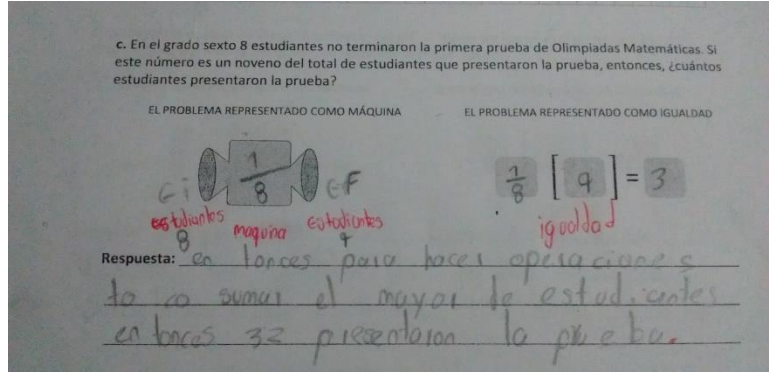 c. En el grado sexto 8 estudiantes no terminaron la primera prueba de Olimpiadas Matemáticas. Si
este número es un noveno del total de estudiantes que presentaron la prueba, entonces, ¿cuántos
estudiantes presentaron la prueba?
EL PROBLEMA REPRESENTADO COMO MÁQUINA
EL PROBLEMA REPRESENTADO COMO IGUALDAD
Ei 1/8 EF
estudiantes maquina estudiantes
8 9
1/8 [ 9 ] = 3
igualdad
Respuesta: en tonces para hacer operaciones
to co sumar el mayor de estudiantes
en tonces 32 presentaron la prueba.